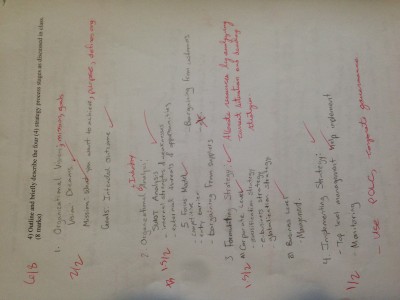 4) Outline and briefly describe the four (4) strategy process stages as discussed in class.
(8 marks)
6/8
1. Organisational Vision, mission, goals
Vision: Dreams
Mission: What you want to achieve, purpose, define org
Goals: Intended outcome
2/2
2. Organisational Analysis: + Industry
SWOT Analysis
- internal strengths & weaknesses
- external threats & opportunities
5 Forces Model
- competitive
- entry barrier
- Bargaining from suppliers
- Bargaining from customers
1 1/2
3. Formulating Strategy:
Allocate resources by analysing current situation and develop strategies
a) Corporate Level
- diversification strategy
- e-business strategy
- globalisation strategy
b) Business Level
1 1/2
4. Implementing Strategy:
- Top level management help implement
- Monitoring
- Use POLC, corporate governance
1/2